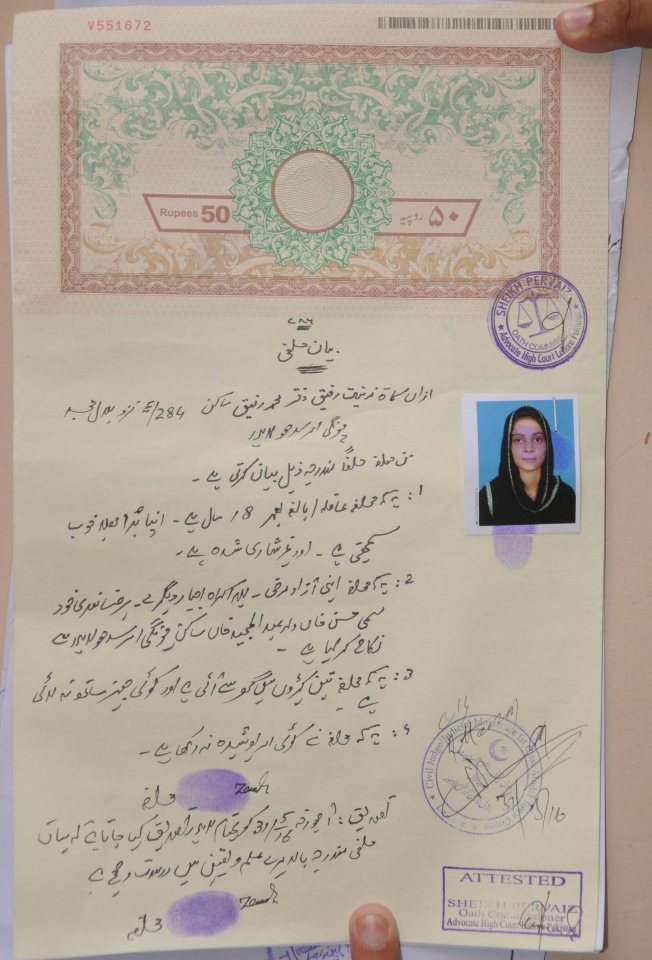 V551672
Rupees 50
۵۰ روپیہ
SHEIKH PERVAIZ
OATH COMMISSIONER
Advocate High Court Lahore Pakistan
۷۸۶
بیان حلفی
ازاں مسماۃ زینت رفیق دختر محمد رفیق ساکن 284/E نزد
چونگی امر سدھو لاہور
من حلفاً مندرجہ ذیل بیان کرتی ہے۔
1: یہ کہ محلفہ عاقلہ / بالغہ بعمر 18 سال ہے۔ اپنا برا بھلا خوب
سمجھتی ہے۔ اور غیر شادی شدہ ہے۔
2: یہ کہ محلفہ اپنی آزاد مرضی۔ بلا اکراہ و اجبار دیگرے۔ برضامندی خود
مسمی حسن خاں ولد عبدالمجید خاں ساکن چونگی امر سدھو لاہور سے
نکاح کر لیا ہے۔
3: یہ کہ محلفہ تین کپڑوں میں گھر سے آئی ہے اور کوئی چیز ساتھ نہ لائی
ہے۔
4: یہ کہ محلفہ نے کوئی امر پوشیدہ نہ رکھا ہے۔
محلفہ
تصدیق: آج مورخہ 31/5/16 کو بمقام لاہور تصدیق کی جاتا ہے کہ بیان
حلفی مندرجہ بالا میرے علم و یقین میں درست و صحیح ہے
محلفہ
Civil Judge/Judicial Magistrate
ATTESTED
SHEIKH PERVAIZ
Oath Commissioner
Advocate High Court Lahore Pakistan